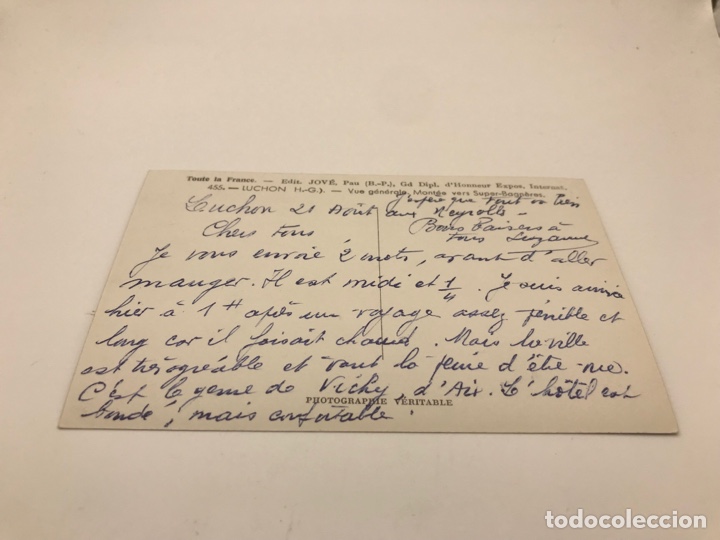 Toute la France. — Edit. JOVÉ, Pau (B.-P.), Gd Dipl. d'Honneur Expos. Internat.
455. — LUCHON H.-G.). — Vue générale. Montée vers Super-Bagnères.
J'espère que tout va bien
aux Neyrolles.
Bons Baisers à
tous Suzanne
Luchon 21 Août
Chers tous,
Je vous envoie 2 mots, avant d'aller
manger. Il est midi et 1/4. Je suis arrivée
hier à 1 H après un voyage assez pénible et
long car il faisait chaud. Mais la ville
est très agréable et vaut la peine d'être vue.
C'est le genre de Vichy, d'Aix. L'hôtel est
bondé, mais confortable.
PHOTOGRAPHIE VÉRITABLE
todocoleccion.net